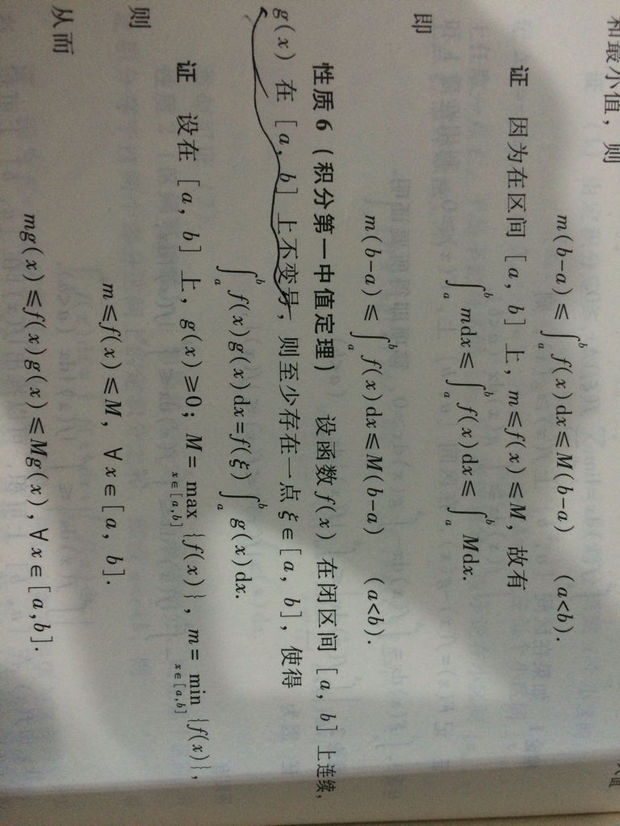 和最小值，则
m(b-a)≤∫_a^b f(x)dx≤M(b-a) (a<b).
证 因为在区间[a, b]上，m≤f(x)≤M，故有
∫_a^b mdx≤∫_a^b f(x)dx≤∫_a^b Mdx.
即
m(b-a)≤∫_a^b f(x)dx≤M(b-a) (a<b).
性质6（积分第一中值定理） 设函数f(x)在闭区间[a, b]上连续,
g(x)在[a, b]上不变号，则至少存在一点ξ∈[a, b]，使得
∫_a^b f(x)g(x)dx=f(ξ)∫_a^b g(x)dx.
证 设在[a, b]上，g(x)≥0；M=max_{x∈[a,b]}{f(x)}，m=min_{x∈[a,b]}{f(x)}，
则
m≤f(x)≤M，∀x∈[a, b].
从而
mg(x)≤f(x)g(x)≤Mg(x)，∀x∈[a,b].